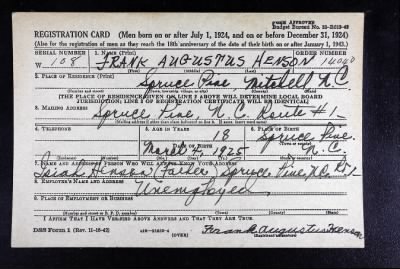 FORM APPROVED
Budget Bureau No. 33-R012-42
REGISTRATION CARD (Men born on or after July 1, 1924, and on or before December 31, 1924)
(Also for the registration of men as they reach the 18th anniversary of the date of their birth on or after January 1, 1943.)
SERIAL NUMBER 1. NAME (Print) ORDER NUMBER
W 108 FRANK AUGUSTUS HENSON
(First) (Middle) (Last)
2. PLACE OF RESIDENCE (Print)
Spruce Pine Mitchell N.C.
(THE PLACE OF RESIDENCE GIVEN ON LINE 2 ABOVE WILL DETERMINE LOCAL BOARD
JURISDICTION; LINE 2 OF REGISTRATION CERTIFICATE WILL BE IDENTICAL)
3. MAILING ADDRESS
Spruce Pine, N.C. Route #1
4. TELEPHONE 5. AGE IN YEARS 6. PLACE OF BIRTH
18 Spruce Pine
DATE OF BIRTH
March 7, 1925 N.C.
7. NAME AND ADDRESS OF PERSON WHO WILL ALWAYS KNOW YOUR ADDRESS
Isiah Henson (Father) Spruce Pine, N.C.
8. EMPLOYER'S NAME AND ADDRESS
Unemployed
9. PLACE OF EMPLOYMENT OR BUSINESS
(Number and street or R. F. D. number) (Town) (County) (State)
I AFFIRM THAT I HAVE VERIFIED ABOVE ANSWERS AND THAT THEY ARE TRUE.
DSS Form 1 (Rev. 11-16-42) (OVER) Frank Augustus Henson
(Registrant's signature)